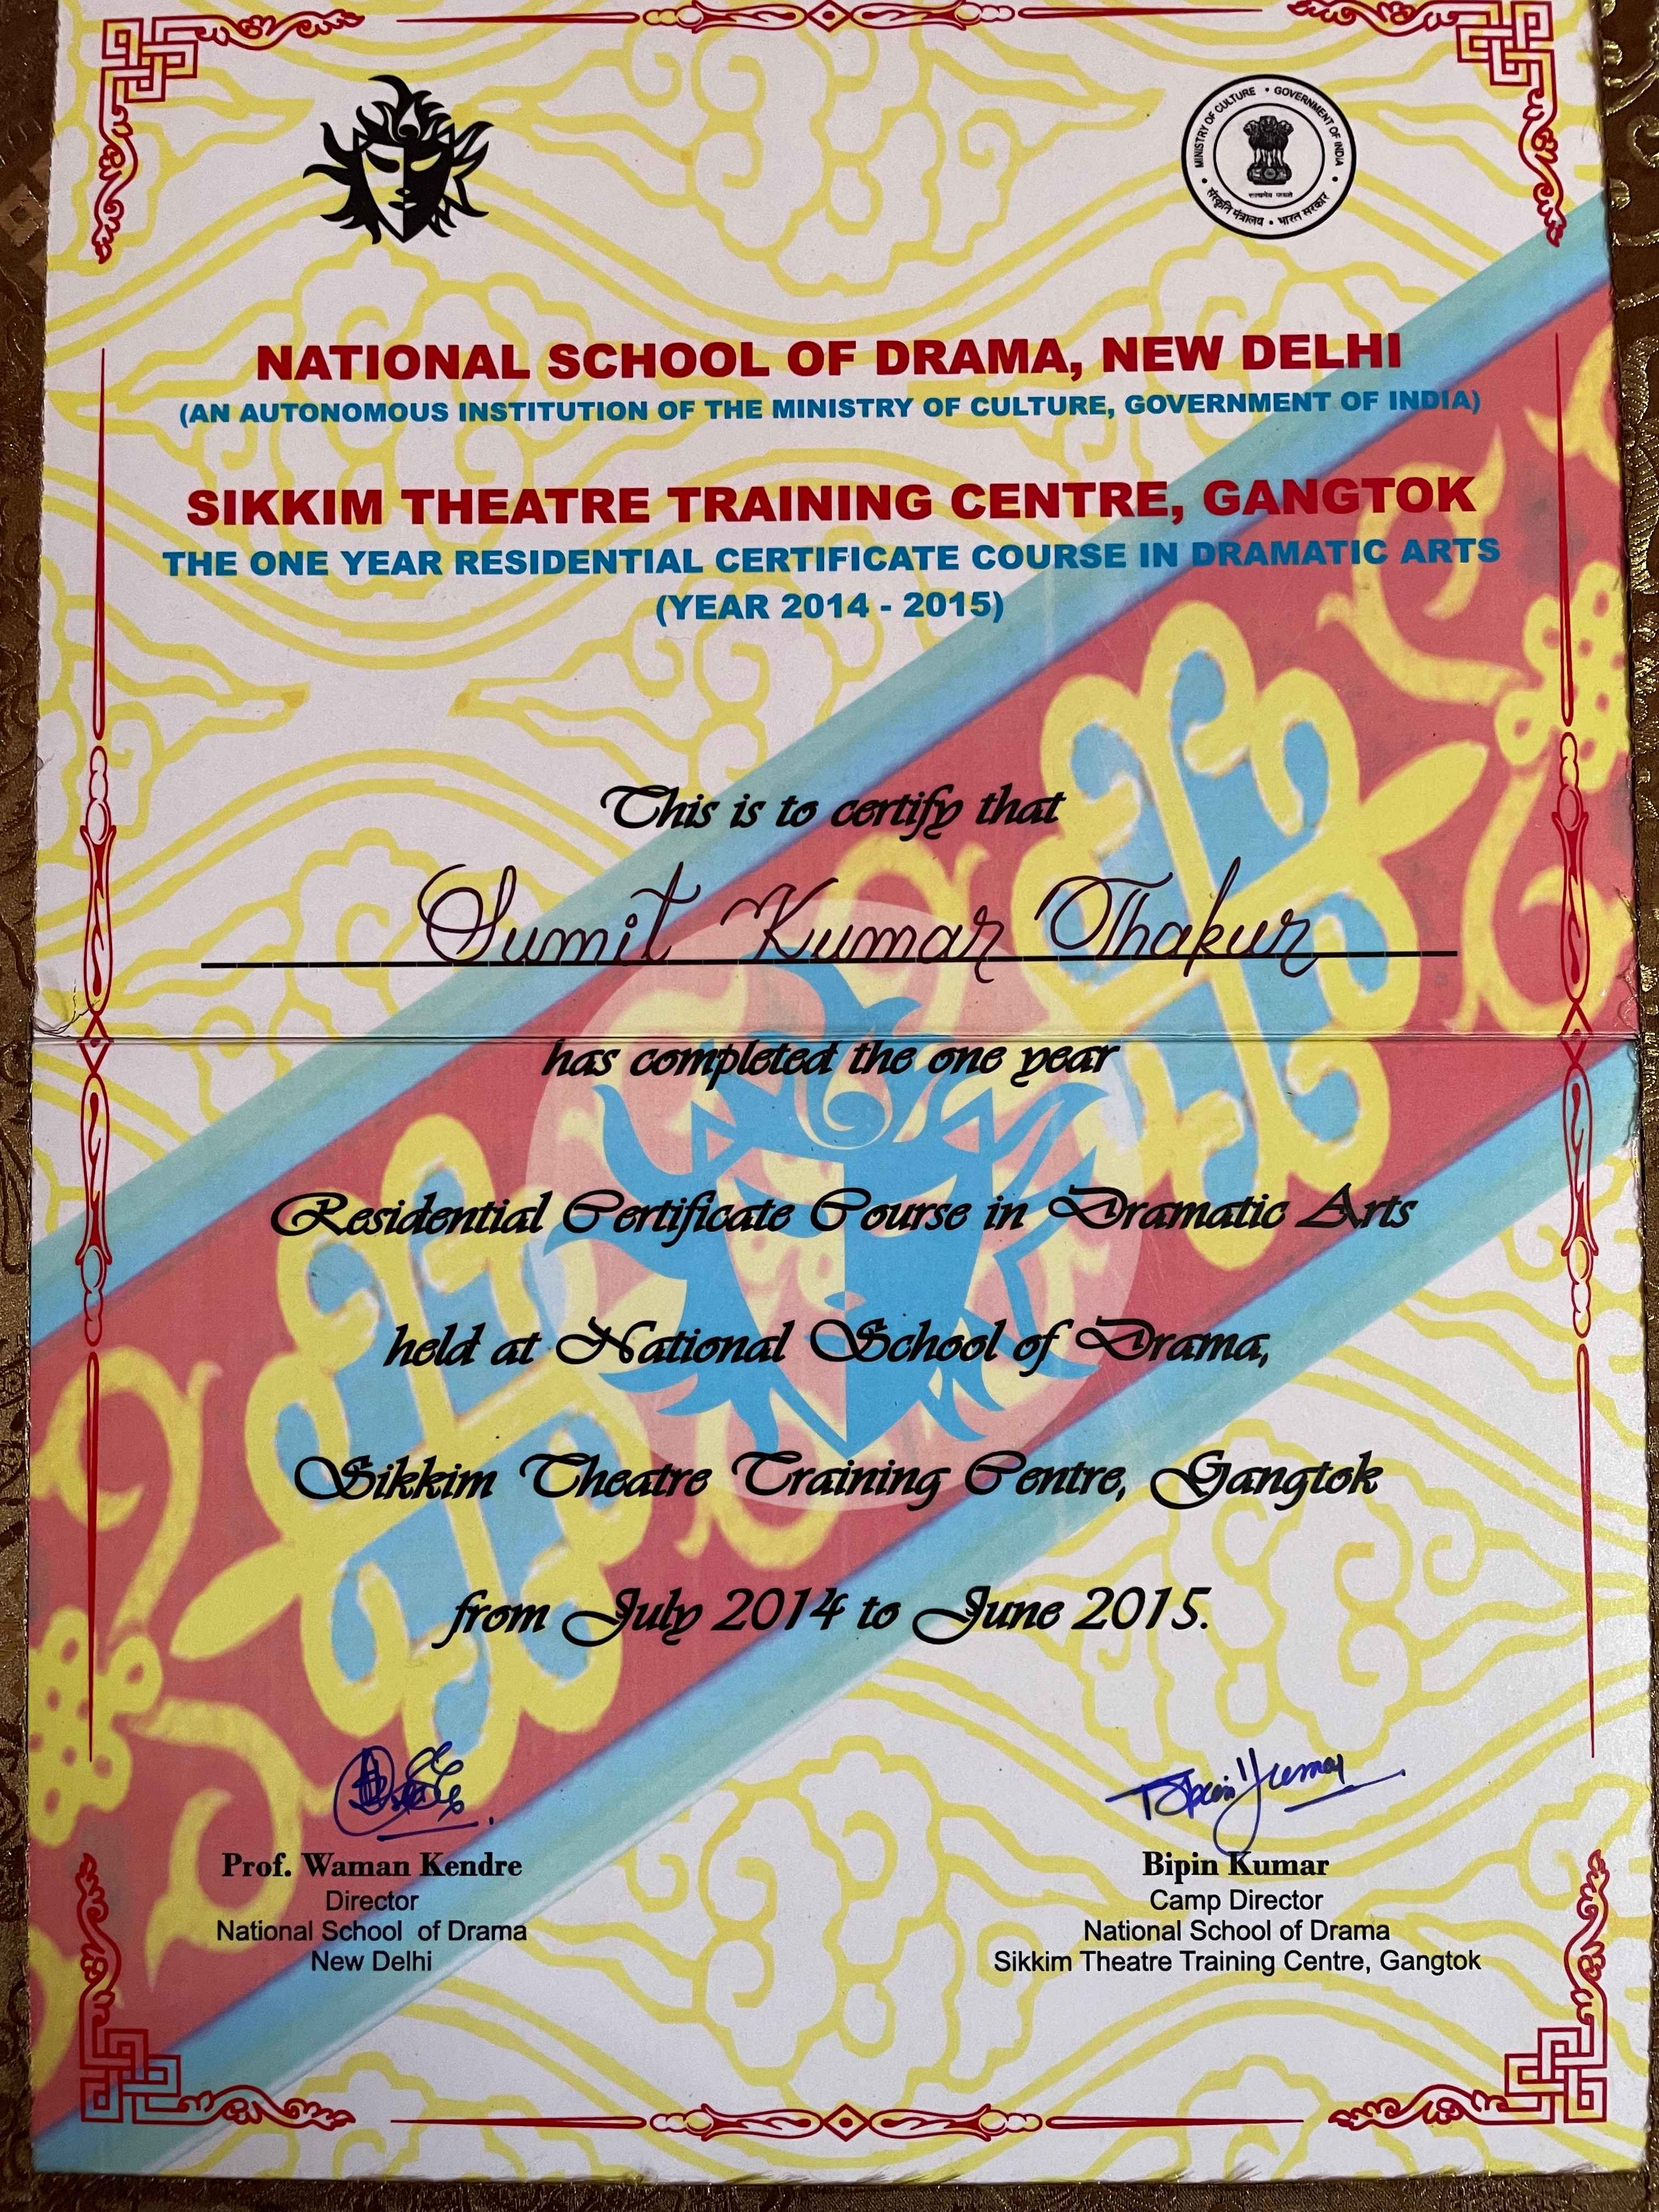 MINISTRY OF CULTURE • GOVERNMENT OF INDIA
संस्कृति मंत्रालय • भारत सरकार
सत्यमेव जयते
NATIONAL SCHOOL OF DRAMA, NEW DELHI
(AN AUTONOMOUS INSTITUTION OF THE MINISTRY OF CULTURE, GOVERNMENT OF INDIA)
SIKKIM THEATRE TRAINING CENTRE, GANGTOK
THE ONE YEAR RESIDENTIAL CERTIFICATE COURSE IN DRAMATIC ARTS
(YEAR 2014 - 2015)
This is to certify that
Sumit Kumar Thakur
has completed the one year
Residential Certificate Course in Dramatic Arts
held at National School of Drama,
Sikkim Theatre Training Centre, Gangtok
from July 2014 to June 2015.
Prof. Waman Kendre
Director
National School of Drama
New Delhi
Bipin Kumar
Bipin Kumar
Camp Director
National School of Drama
Sikkim Theatre Training Centre, Gangtok